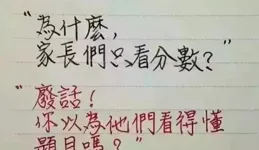 "為什麼，
家長們只看分數？"
"廢話！
你以為他們看得懂
題目嗎？"